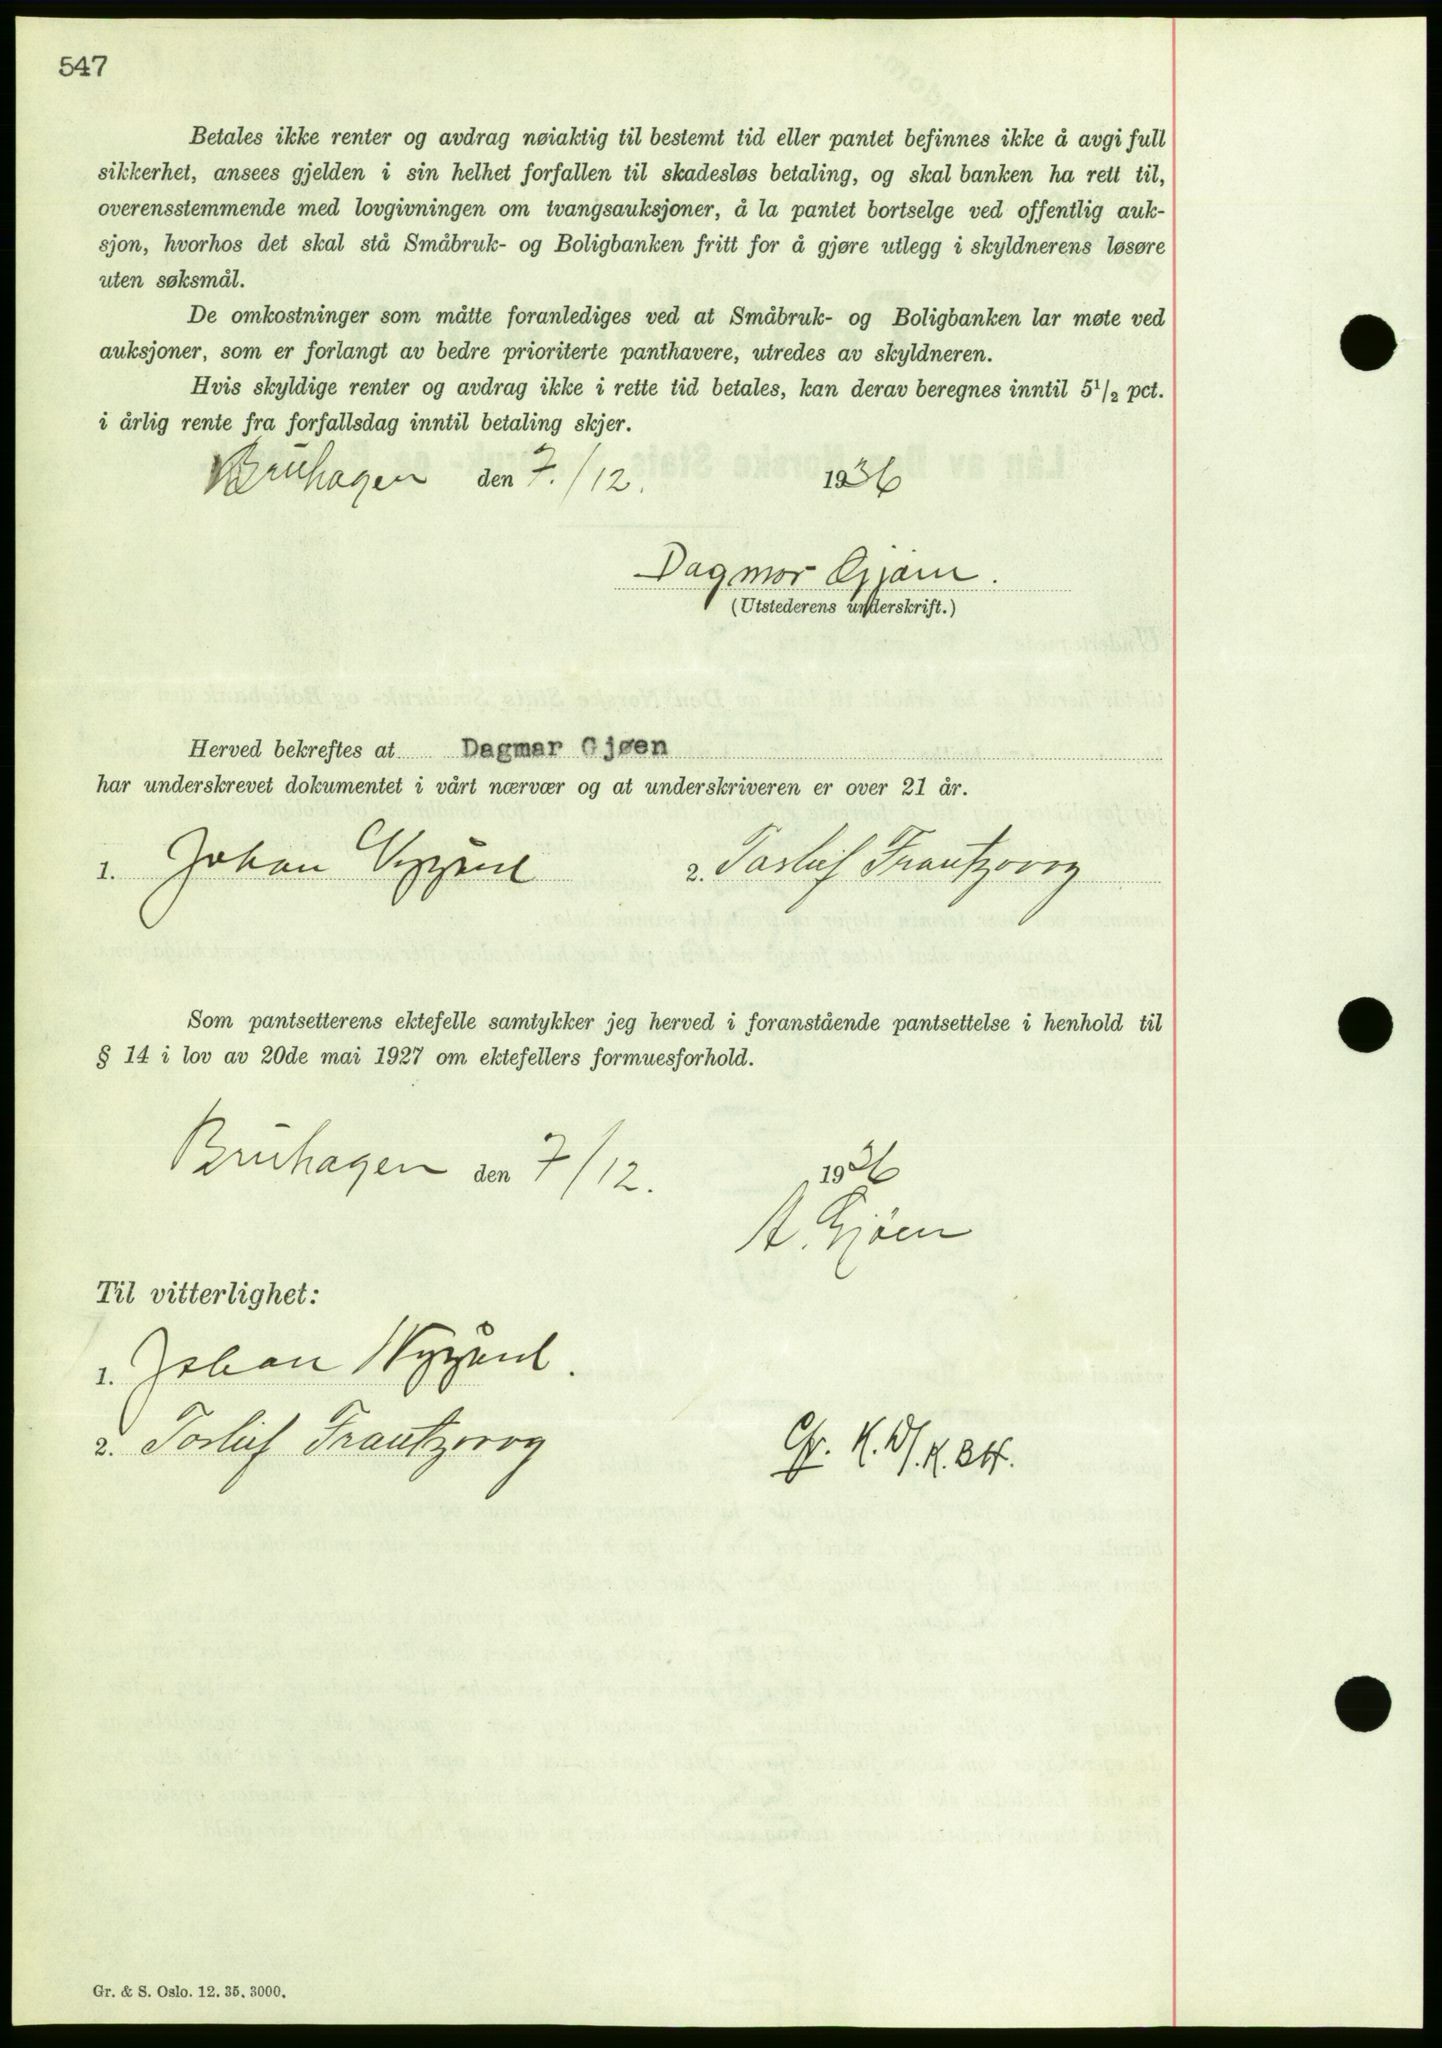 547
Betales ikke renter og avdrag nøiaktig til bestemt tid eller pantet befinnes ikke å avgi full
sikkerhet, ansees gjelden i sin helhet forfallen til skadesløs betaling, og skal banken ha rett til,
overensstemmende med lovgivningen om tvangsauksjoner, å la pantet bortselge ved offentlig auk-
sjon, hvorhos det skal stå Småbruk- og Boligbanken fritt for å gjøre utlegg i skyldnerens løsøre
uten søksmål.
De omkostninger som måtte foranlediges ved at Småbruk- og Boligbanken lar møte ved
auksjoner, som er forlangt av bedre prioriterte panthavere, utredes av skyldneren.
Hvis skyldige renter og avdrag ikke i rette tid betales, kan derav beregnes inntil 5 1/2 pct.
i årlig rente fra forfallsdag inntil betaling skjer.
Bruhagen den 7./12. 1936
Dagmar Gjøen.
(Utstederens underskrift.)
Herved bekreftes at Dagmar Gjøen
har underskrevet dokumentet i vårt nærvær og at underskriveren er over 21 år.
1. Johan 2. Frantzvog
Som pantsetterens ektefelle samtykker jeg herved i foranstående pantsettelse i henhold til
§ 14 i lov av 20de mai 1927 om ektefellers formuesforhold.
Bruhagen den 7/12. 1936
A. Gjøen
Til vitterlighet:
1. Johan
2. Frantzvog
Gr. & S. Oslo. 12. 35. 3000.